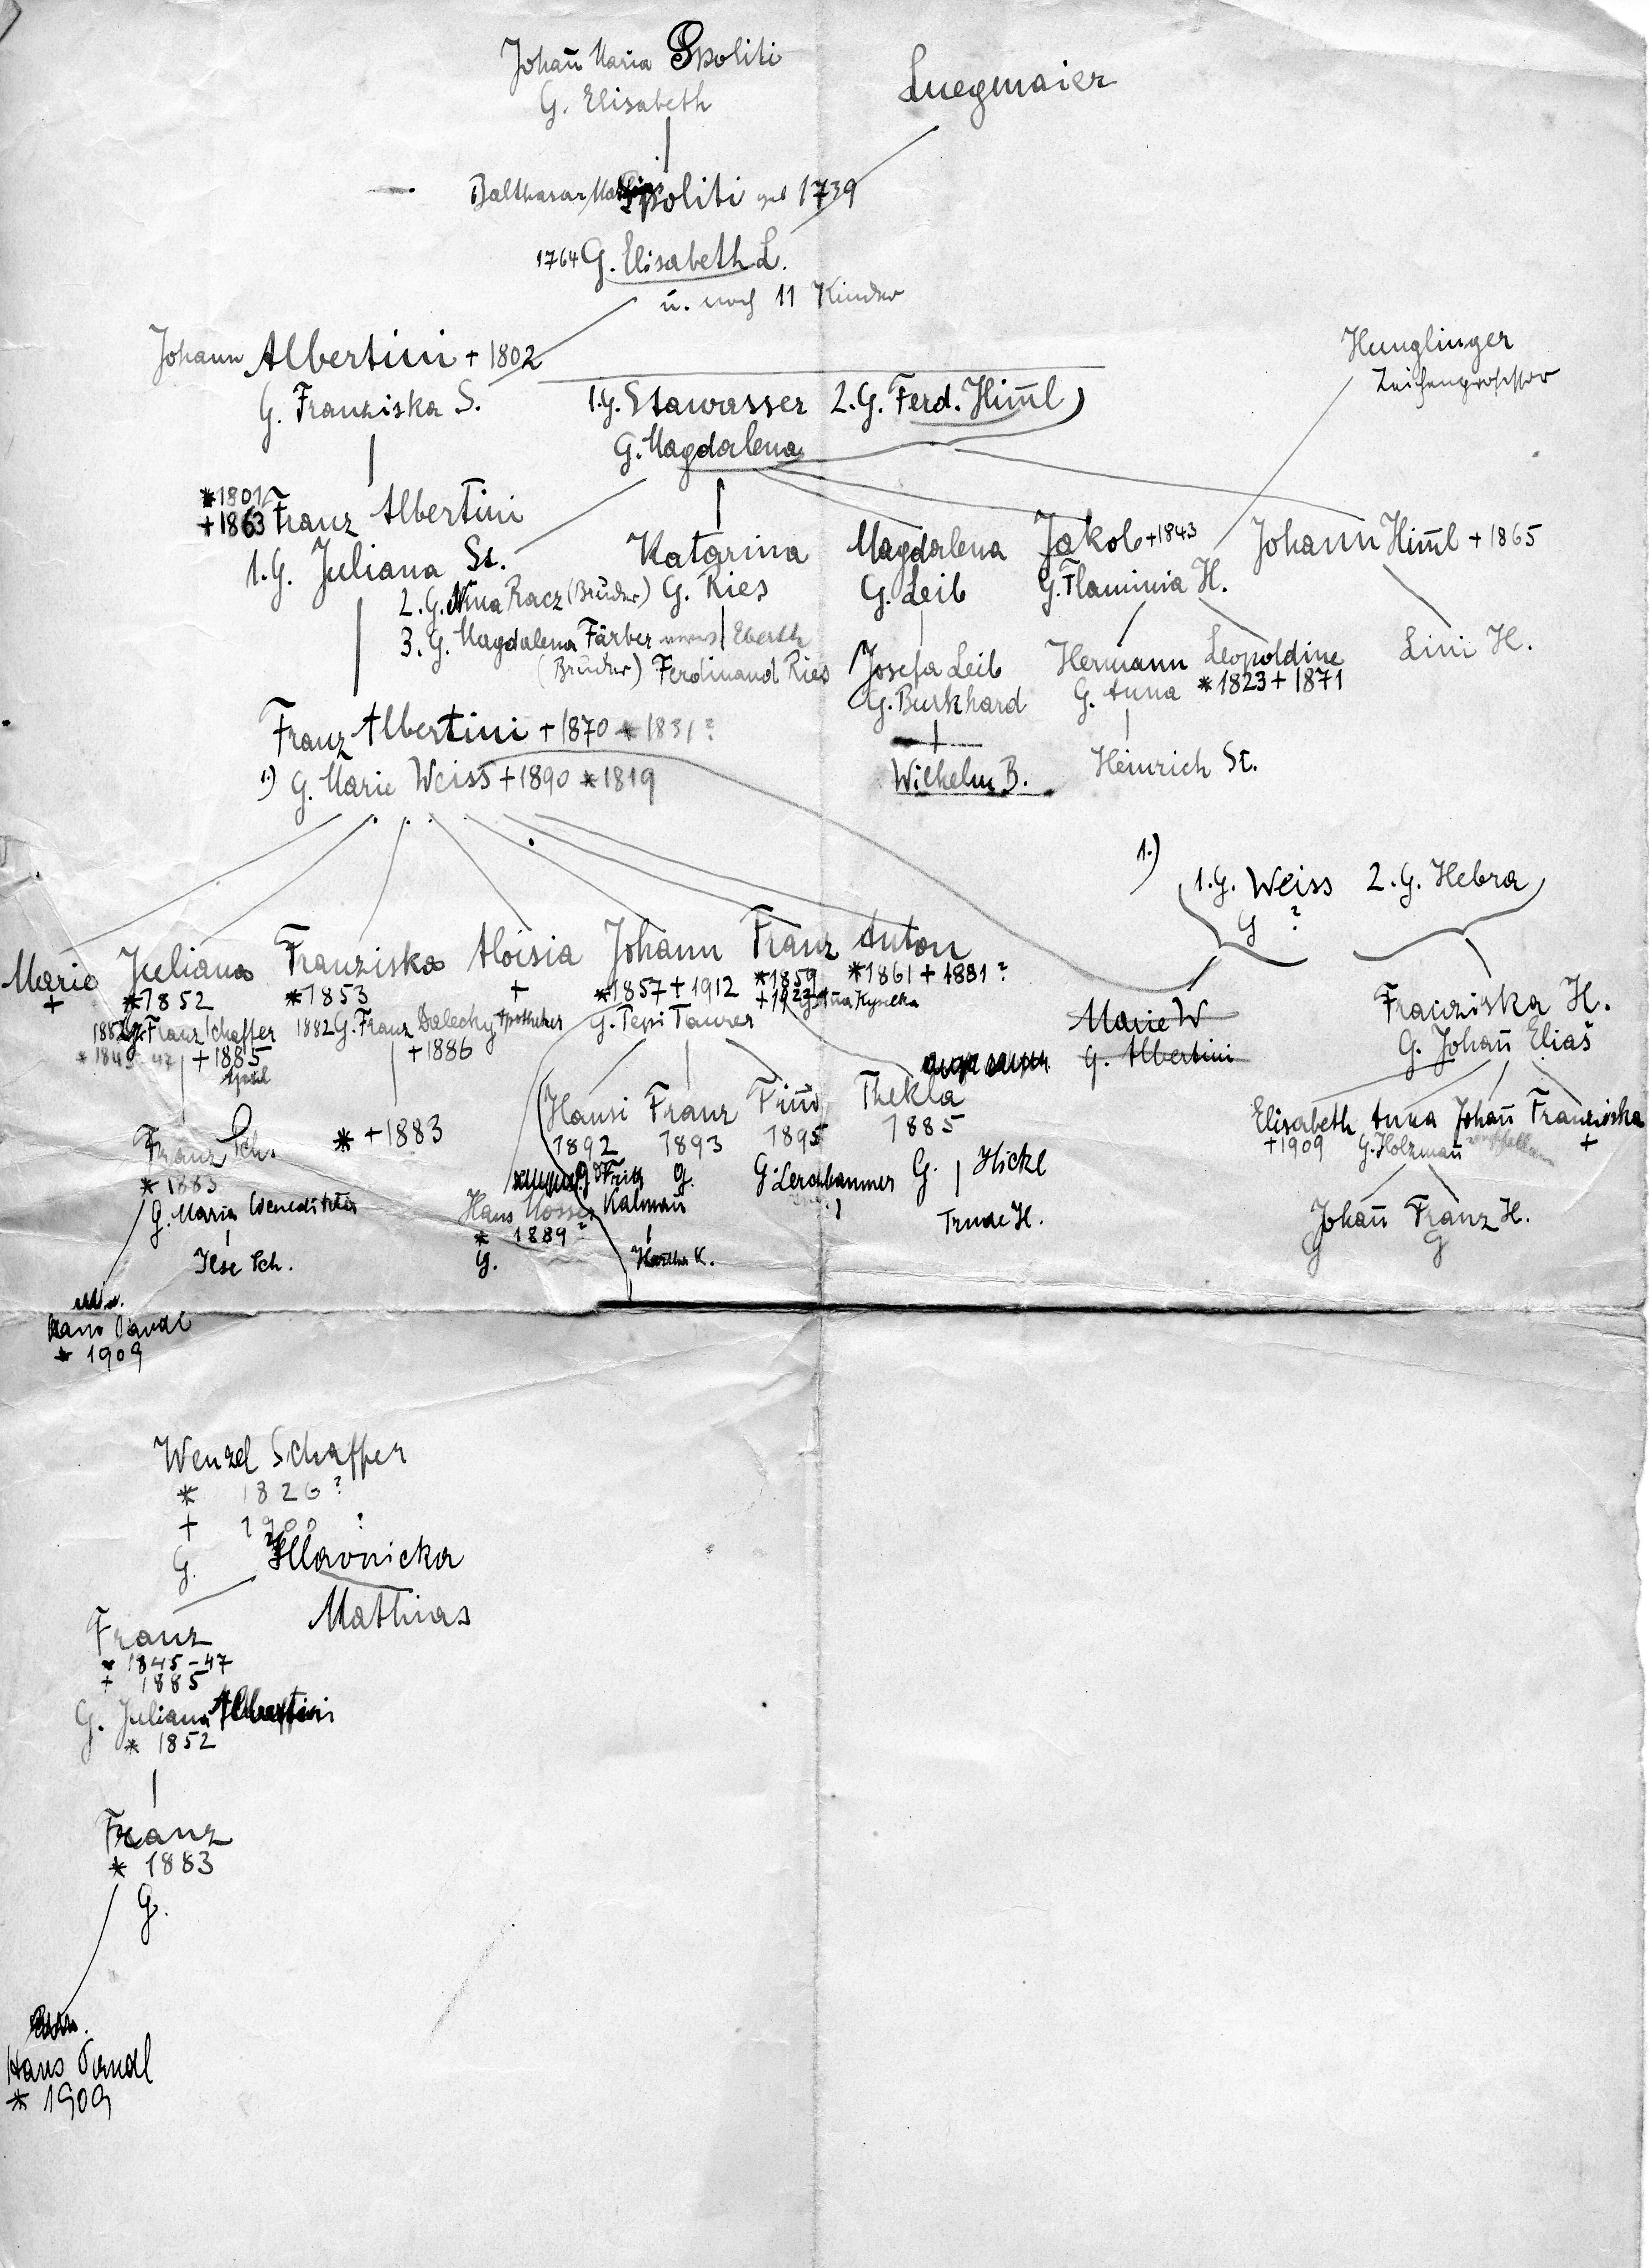 Johañ Maria Spoliti
G. Elisabeth
Luegmaier
Balthasar Spoliti geb 1739
1764 G. Elisabeth L.
u. noch 11 Kinder
Johann Albertini + 1802
G. Franziska S.
1. G. Stawasser 2. G. Ferd. Him̄l)
G. Magdalena
Hunglinger
Zeichenprofessor
*1801
+1863 Franz Albertini
1. G. Juliana St.
2. G. Nina Racz (Brüder)
3. G. Magdalena Färber
(Brüder)
Katarina
G. Ries
Eberth
Ferdinand Ries
Magdalena
G. Leib
Jakob +1843
G. Flaminia H.
Johann Him̄l + 1865
Josefa Leib
G. Burkhard
Wilhelm B.
Hermann
G. Anna
Leopoldine
*1823 + 1871
Heinrich St.
Lini H.
Franz Albertini + 1870 * 1831?
1.) G. Marie Weiss + 1890 * 1819
1.)
(1. G. Weiss 2. G. Hebra)
G ?
Marie
+
Juliana
*1852
1882 G. Franz Schaffer
* 1845-47 + 1885
April
Franziska
*1853
1882 G. Franz Dalecky Apotheker
+1886
Aloisia
+
Johann
*1857 + 1912
G. Pepi Taurer
Franz
*1859
Anton
*1861 + 1881?
Marie W
G. Albertini
Franziska H.
G. Johañ Eliaš
Franz Sch.
* 1883
G. Maria Benedikter
Ilse Sch.
* +1883
(Hansi
1892
Franz
1893
G.
Fini
1895
G. Lerchbaumer
Thekla
1885
G. Hickl
Trude H.
Fritz
Kalman
Hans Mosser
* 1889?
G.
Hertha K.
Elisabeth
+1909
Anna
G. Holzmañ
Johañ
verschollen
Franziska
+
Johañ Franz H.
Hans Pandl
* 1909
Wenzel Schaffer
* 1826?
+ 1900 ?
G. Hlavnicka
Mathias
Franz
* 1845-47
+ 1885
G. Juliana Albertini
* 1852
Franz
* 1883
G.
Hans Pandl
* 1909